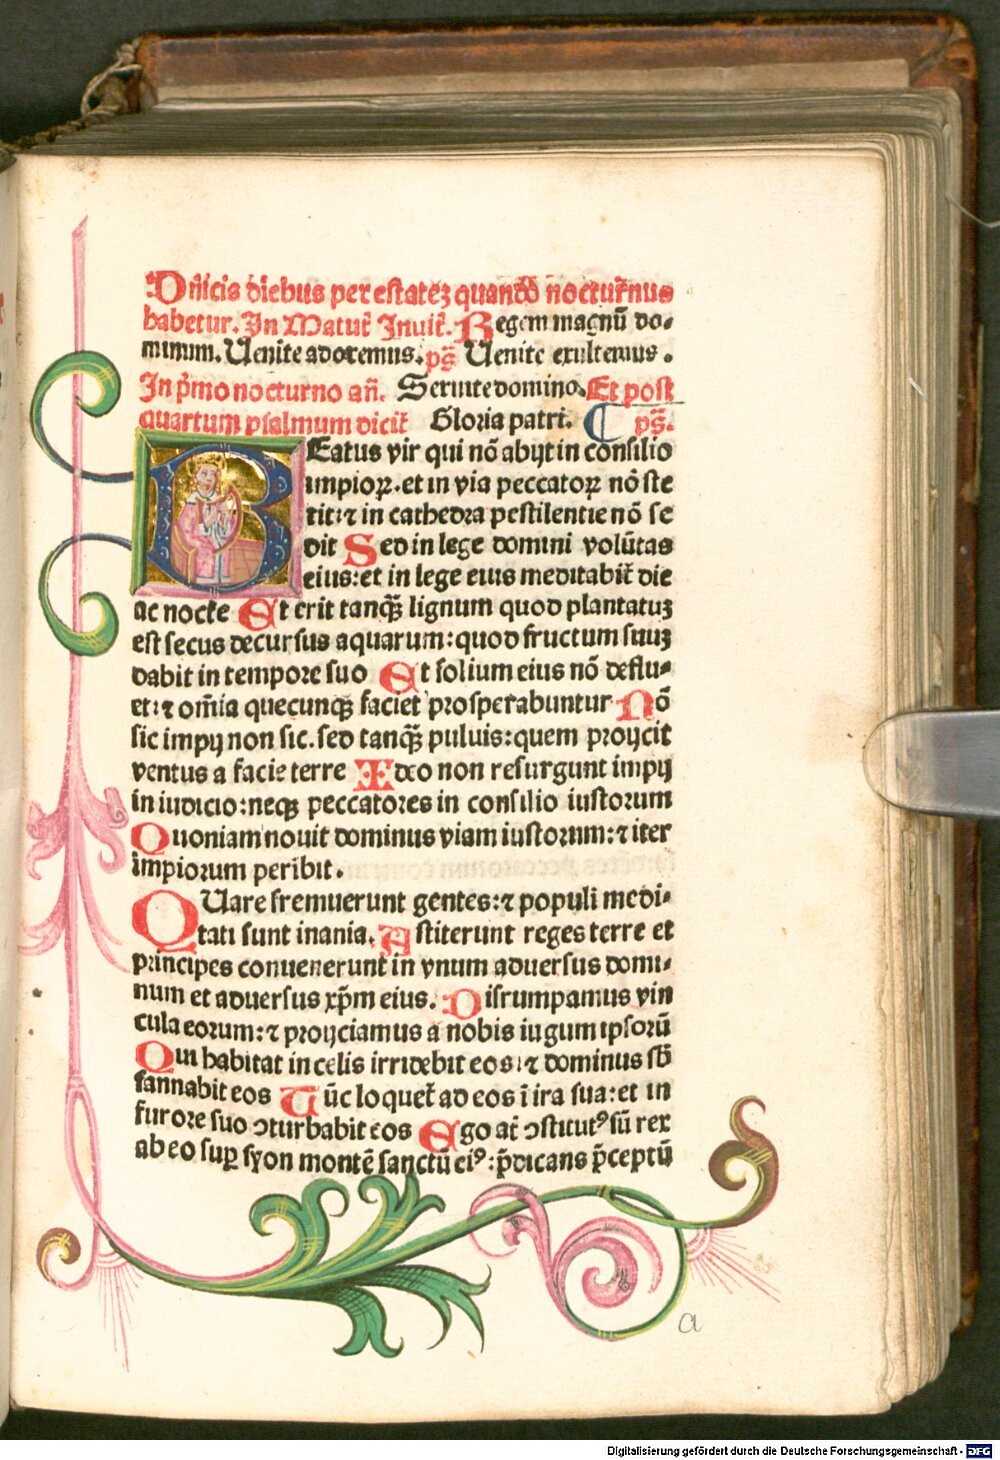 Dn̄icis diebus per estatez quandō nocturnus
habetur. In Matuť Inuiť. Regem magnū do⸗
minum. Uenite adoremus. ps̄ Uenite exultemus.
In p̄mo nocturno añ. Seruite domino. Et post
quartum psalmum diciť Gloria patri. ps̄.
BEatus vir qui nō abijt in consilio
impioꝝ. et in via peccatoꝝ nō ste
tit: ⁊ in cathedra pestilentie nō se
dit Sed in lege domini volūtas
eius: et in lege eius meditabiť die
ac nocte Et erit tanq̄ꝫ lignum quod plantatuꝫ
est secus decursus aquarum: quod fructum suuꝫ
dabit in tempore suo Et folium eius nō deflu⸗
et: ⁊ om̄ia quecunqꝫ faciet prosperabuntur Nō
sic impij non sic. sed tanq̄ꝫ puluis: quem proijcit
ventus a facie terre Ideo non resurgunt impij
in iudicio: neqꝫ peccatores in consilio iustorum
Quoniam nouit dominus viam iustorum: ⁊ iter
impiorum peribit.
QUare fremuerunt gentes: ⁊ populi medi⸗
tati sunt inania. Astiterunt reges terre et
principes conuenerunt in vnum aduersus domi⸗
num et aduersus xp̄m eius. Disrumpamus vin
cula eorum: ⁊ proijciamus a nobis iugum ipsorū
Qui habitat in celis irridebit eos: ⁊ dominus sb̄
sannabit eos Tūc loqueť ad eos ī ira sua: et in
furore suo ↄturbabit eos Ego ať ↄstitutꝰ sū rex
ab eo suꝑ syon montē sanctū eiꝰ: p̄dicans p̄ceptū
a
Digitalisierung gefördert durch die Deutsche Forschungsgemeinschaft - DFG